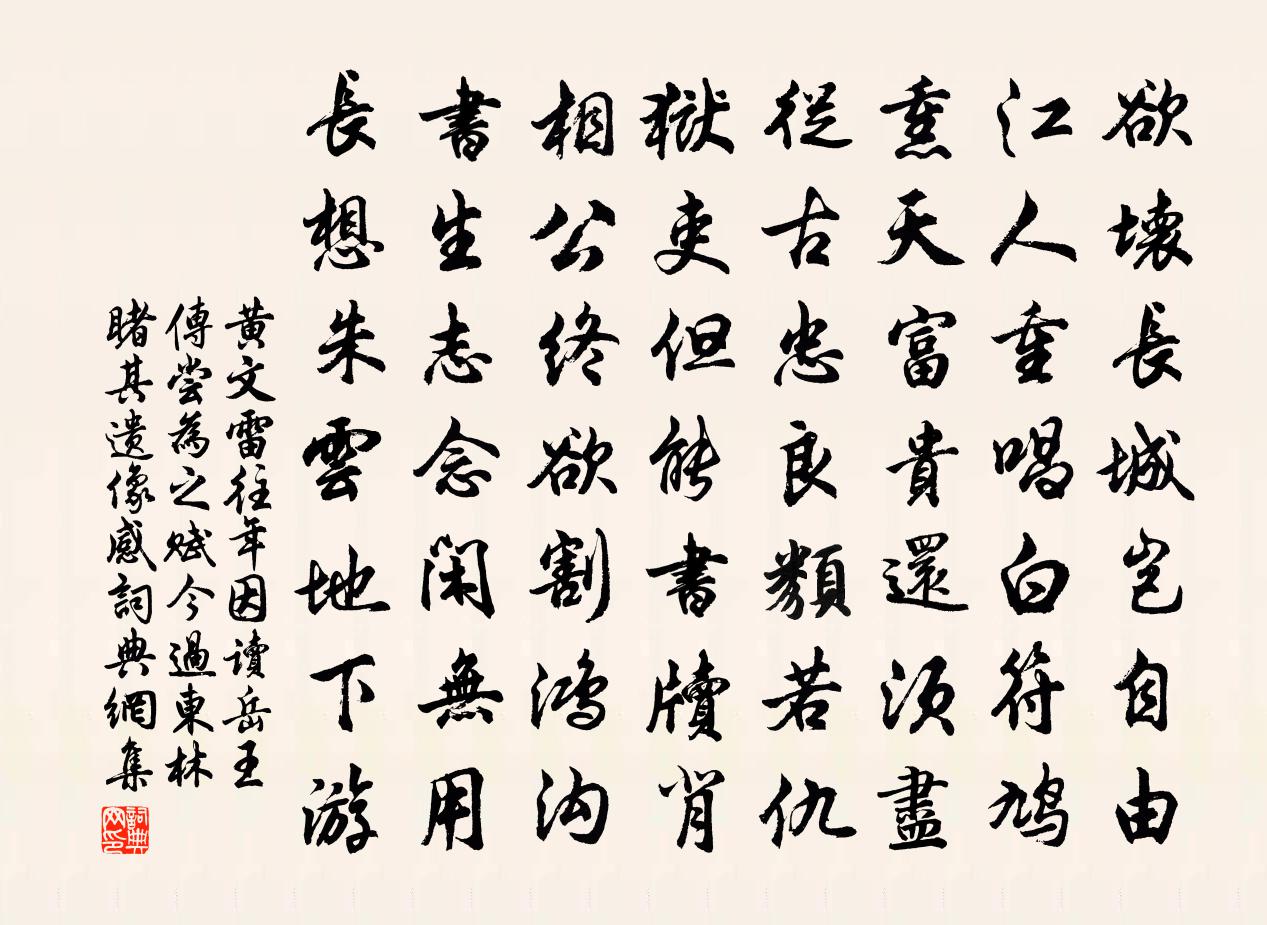 欲壞長城豈自由
江人重唱白符鳩
熏天富貴還須盡
從古忠良類若仇
獄吏但能書牘背
相公終欲割鴻溝
書生志念閑無用
長想朱雲地下游
黄文雷往年因讀岳王
傳嘗為之賦今過東林
睹其遺像感詞典網集
詞典网印